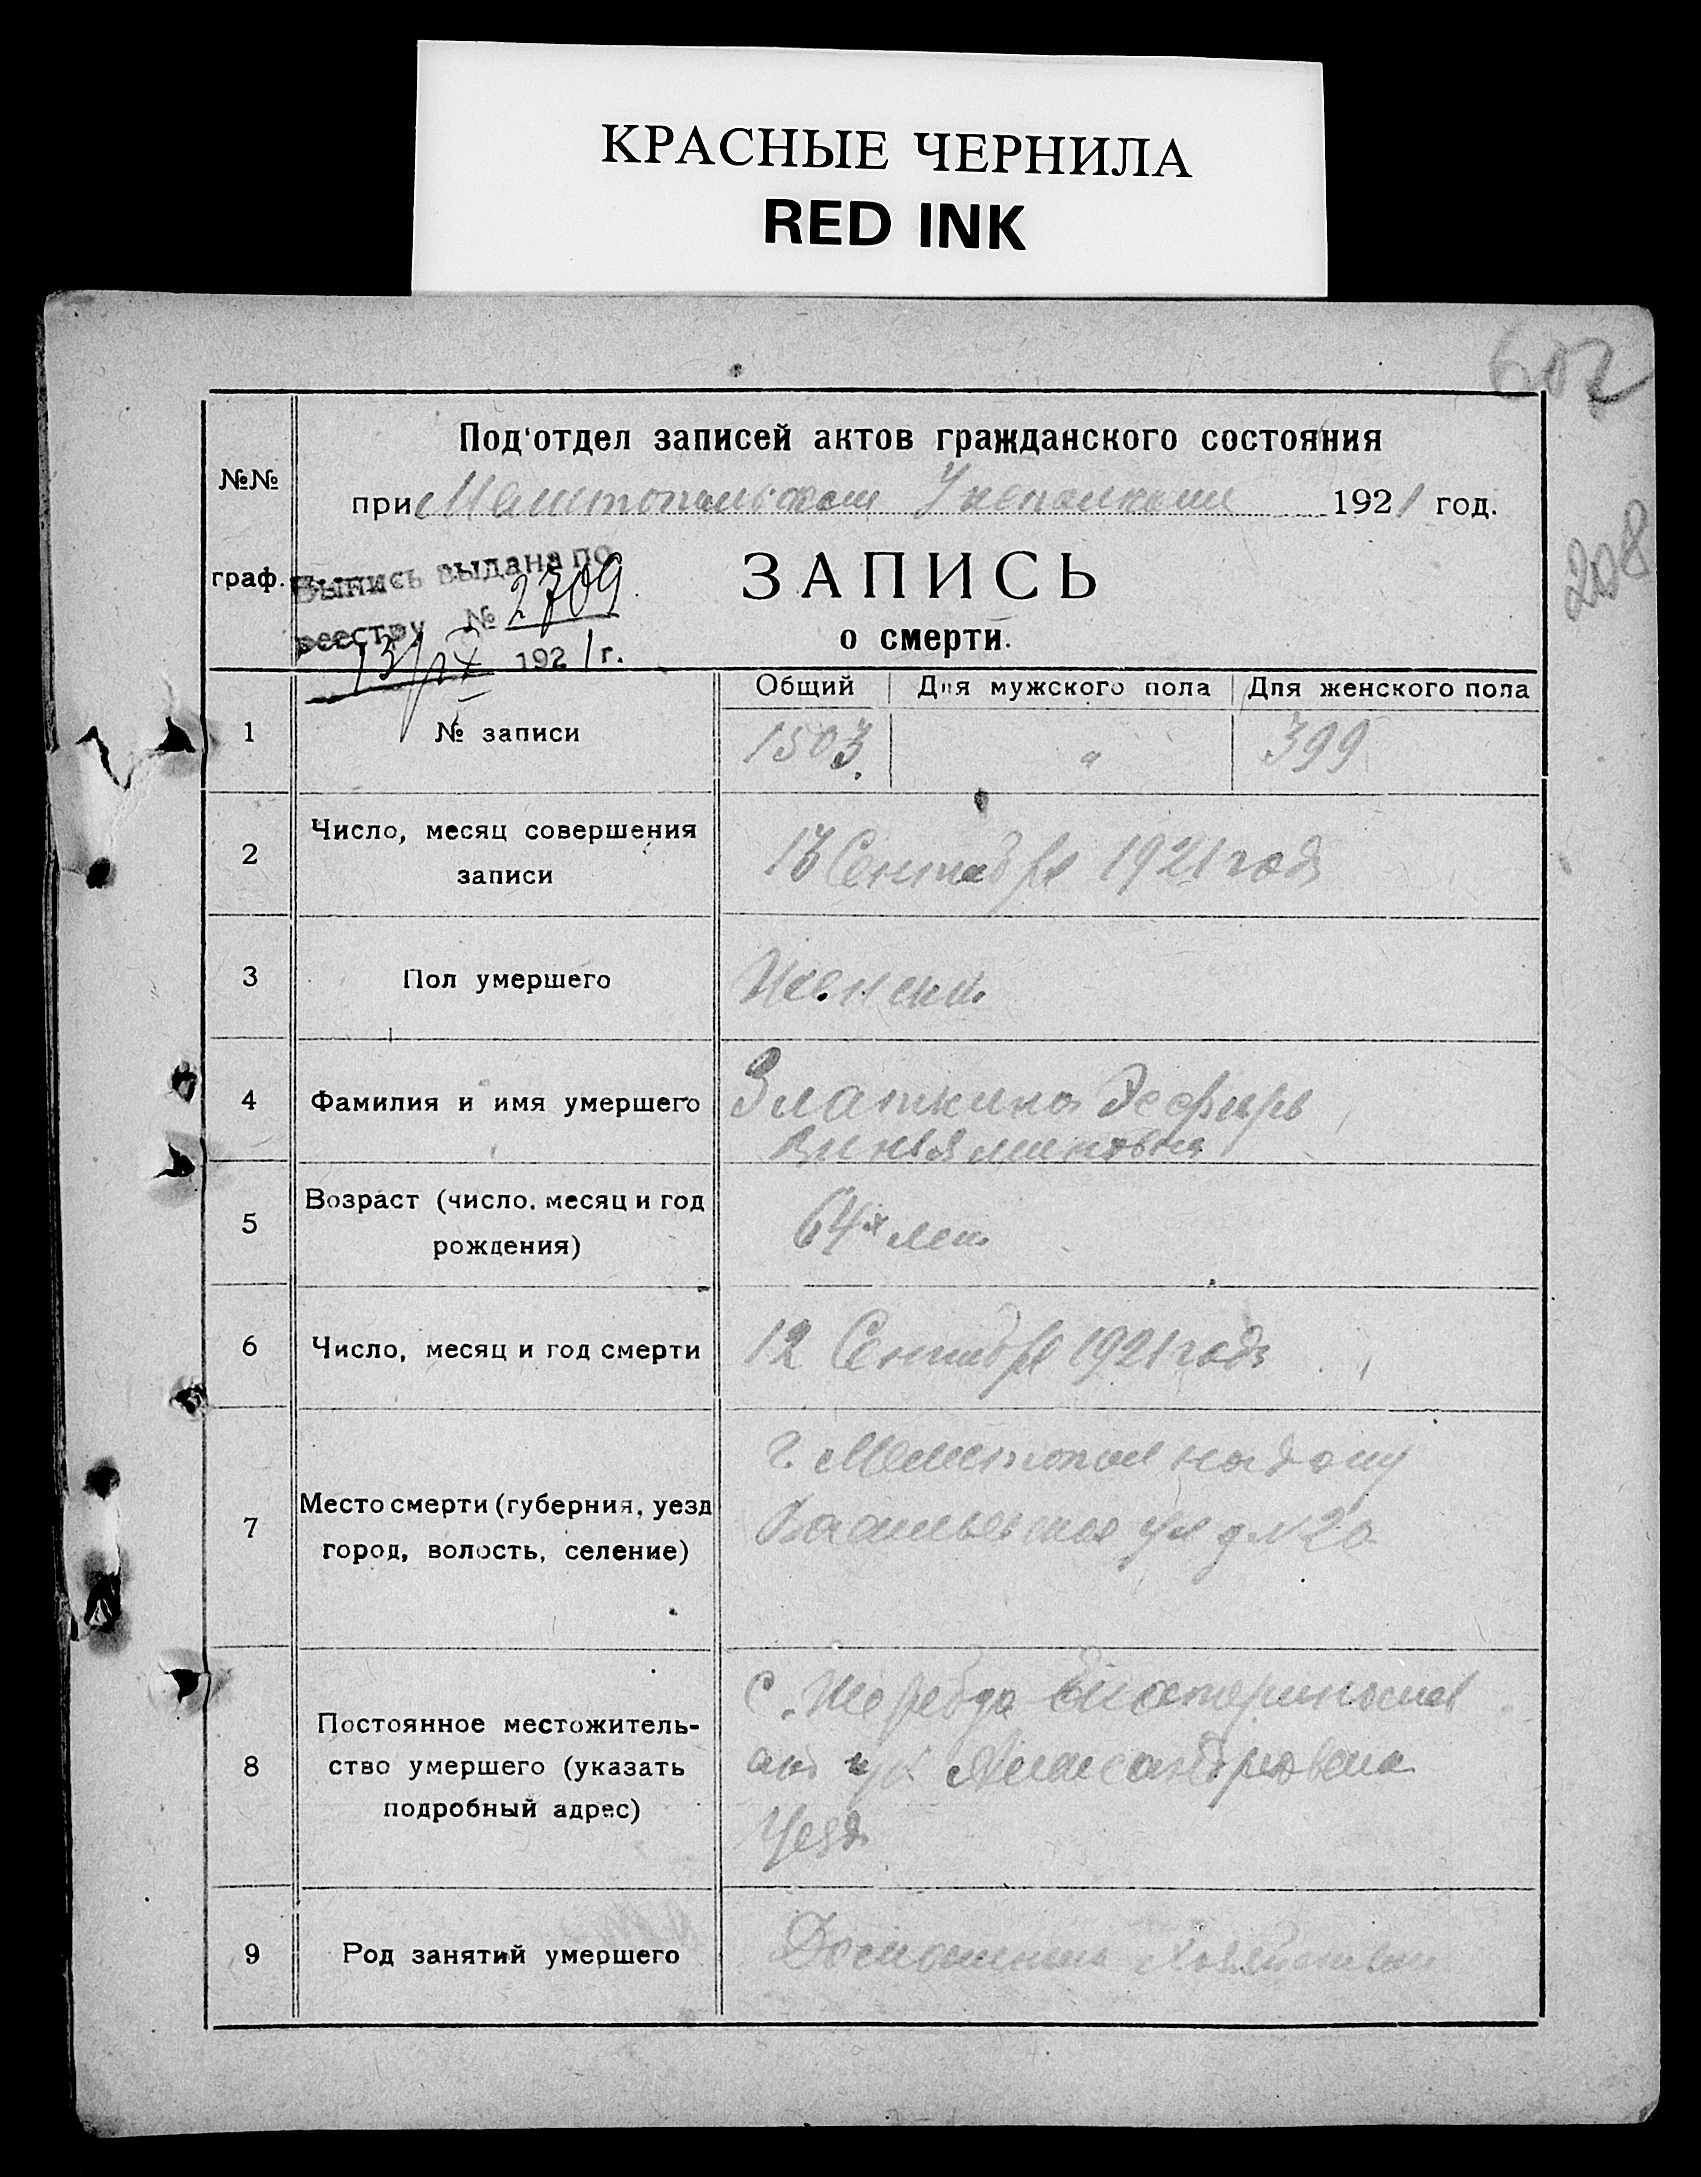 КРАСНЫЕ ЧЕРНИЛА
RED INK
602
208
№№
граф.
Под'отдел записей актов гражданского состояния
при Мелитопольском Уисполкоме 1921 год.
Выпись выдана по
реестру № 2709
13/IX 1921 г.
ЗАПИСЬ
о смерти.
Общий Для мужского пола Для женского пола
1 № записи 1503. " 399
2 Число, месяц совершения
записи
13 Сентября 1921 года
3 Пол умершего Женск.
4 Фамилия и имя умершего Златкина Эсфирь
Виньяминовна
5 Возраст (число, месяц и год
рождения)
64х лет
6 Число, месяц и год смерти 12 Сентября 1921 года
7 Место смерти (губерния, уезд
город, волость, селение)
г. Мелитопол на дому
Васильевская ул д N 20
8 Постоянное местожитель-
ство умершего (указать
подробный адрес)
С. Жеребца Екатеринослав
Александровск.
Уезд
9 Род занятий умершего Домашнее Хозяйство